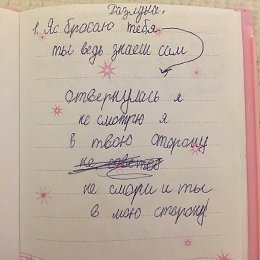 Разлука.
1. Яс бросаю тебя
ты ведь знаеш сам
отвернулась я
не смотрю я
в твою сторону
не смотри и ты
в мою сторону